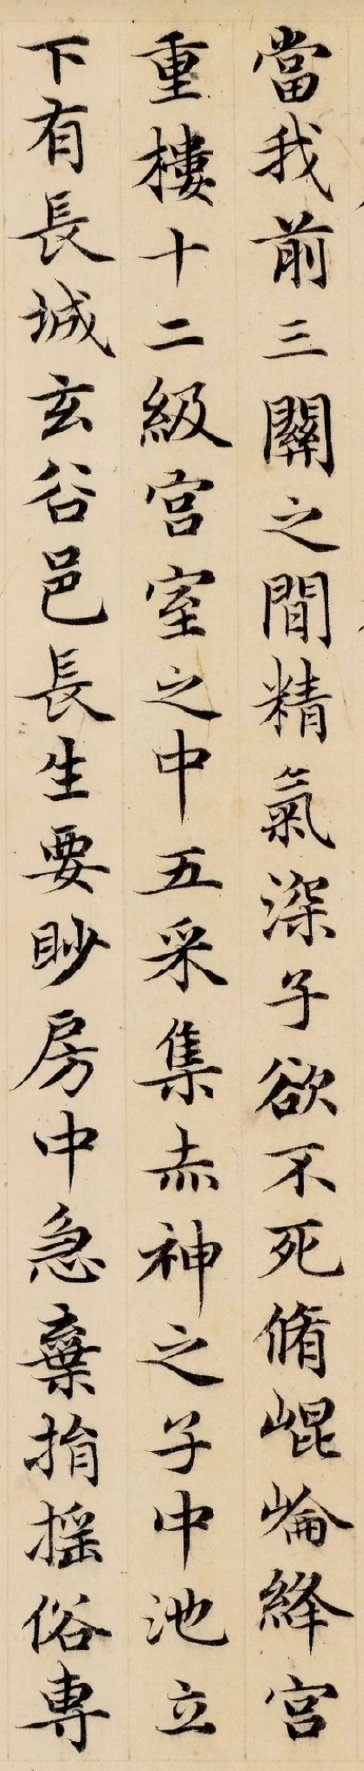 當我前三關之間精氣深子欲不死脩崐崘絳宮
重樓十二級宮室之中五采集赤神之子中池立
下有長城玄谷邑長生要眇房中急棄捐搖俗専